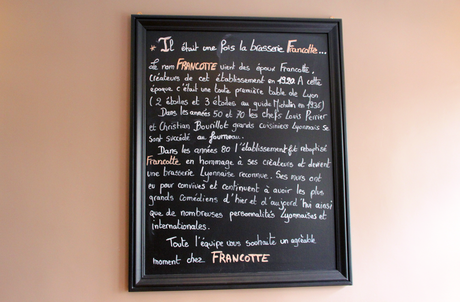 * Il était une fois la brasserie Francotte...
Le nom FRANCOTTE vient des époux Francotte,
créateurs de cet établissement en 1920. A cette
époque c'était une toute première table de Lyon
(2 étoiles et 3 étoiles au guide Michelin en 1936)
Dans les années 50 et 70 les chefs Louis Perrier
et Christian Bourillot grands cuisiniers Lyonnais se
sont succédé au fourneau.
Dans les années 80 l'établissement fut rebaptisé
Francotte en hommage à ses créateurs et devient
une brasserie Lyonnaise reconnue. Ses murs ont
eu pour convives et continuent à avoir les plus
grands comédiens d'hier et d'aujourd'hui ainsi
que de nombreuses personnalités Lyonnaises et
internationales.
Toute l'équipe vous souhaite un agréable
moment chez FRANCOTTE